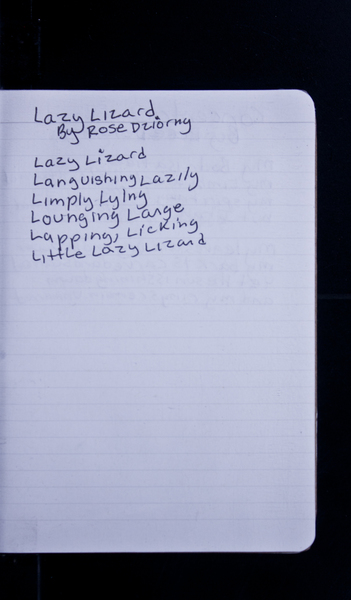 Lazy Lizard
By Rose Dziorny
Lazy Lizard
Languishing Lazily
Limply Lying
Lounging Large
Lapping, Licking
Little Lazy Lizard